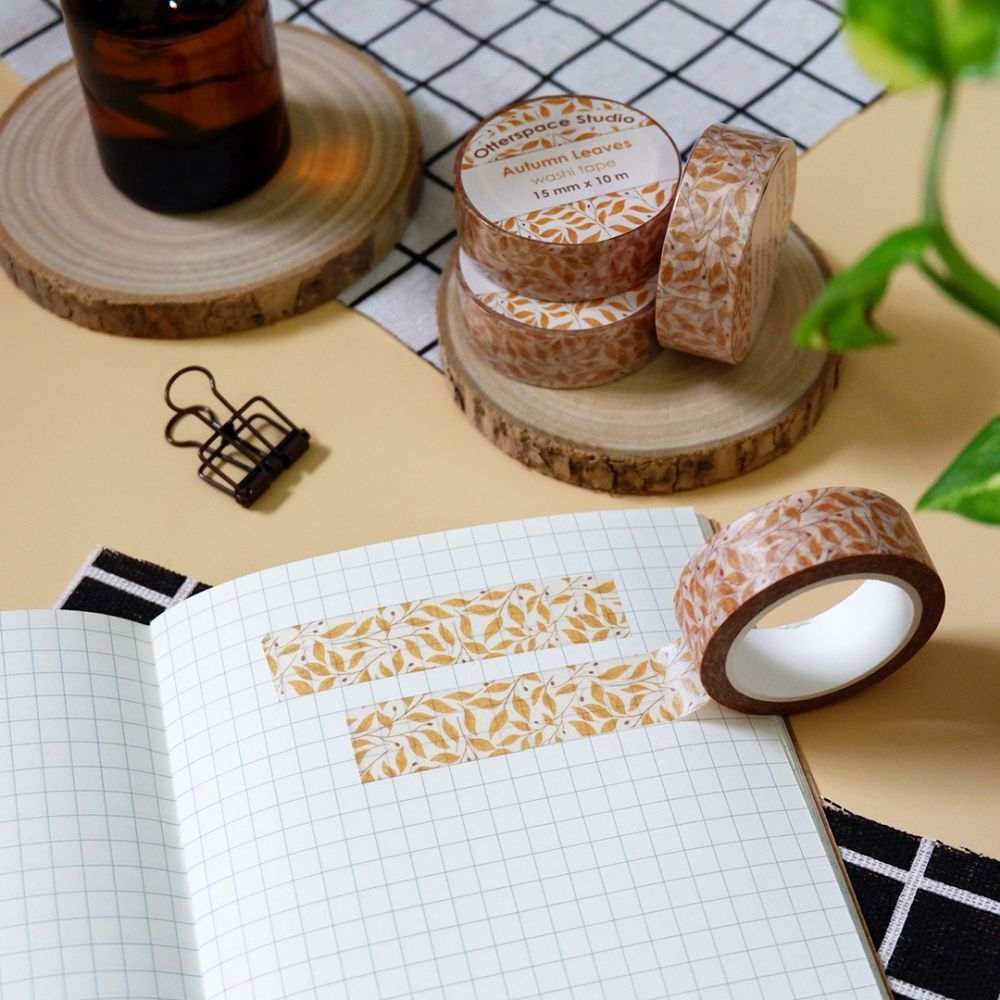 Otterspace Studio
Autumn Leaves
washi tape
15 mm x 10 m